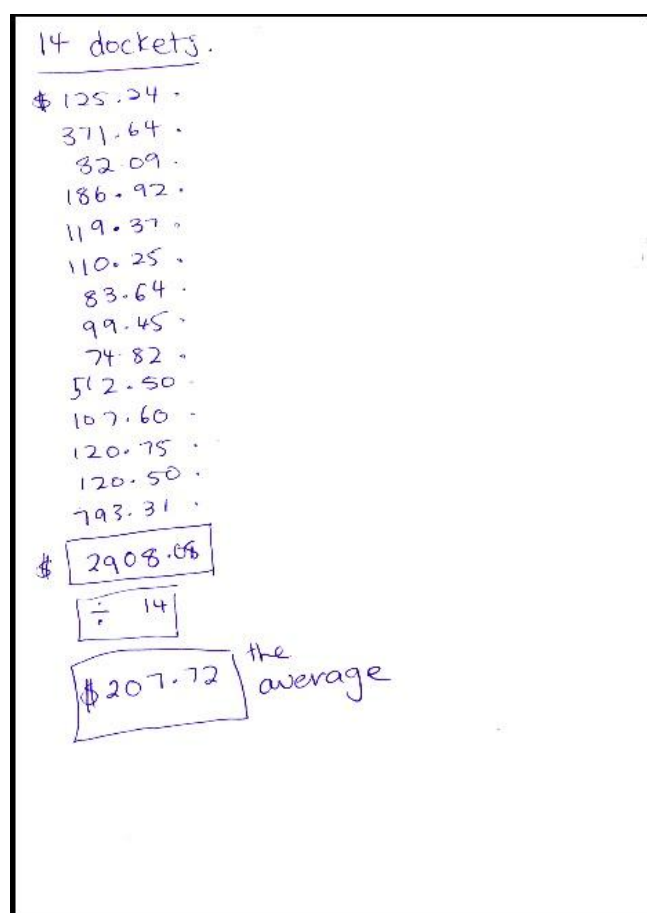 14 dockets.
$ 125.24 .
371.64 .
82.09 .
186.92 .
119.37 .
110.25 .
83.64 .
99.45 .
74.82 .
512.50 .
107.60 .
120.75 .
120.50 .
793.31 .
$ 2908.08
÷ 14
$207.72 the average